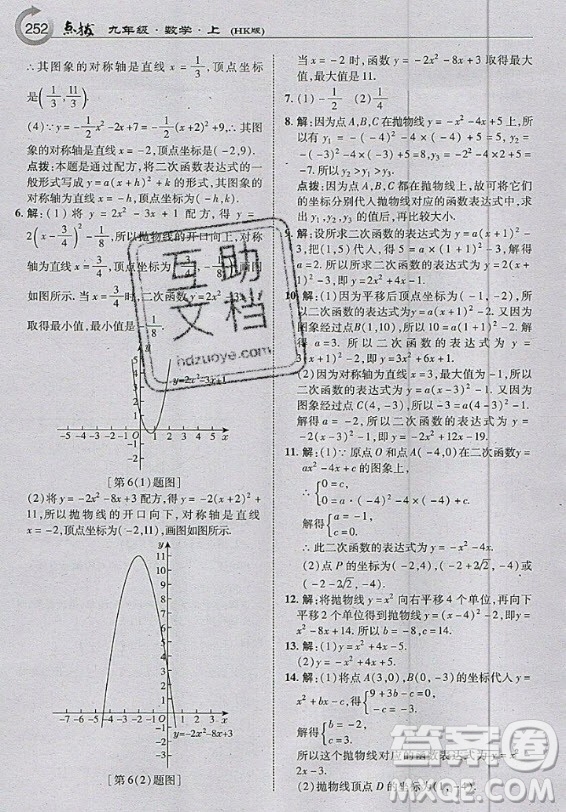 252 点拨 九年级·数学·上 (HK版)
∴其图象的对称轴是直线 x = 1/3, 顶点坐标
是(1/3, 11/3).
(4)∵y = -1/2x²-2x+7 = -1/2(x+2)²+9,∴其图
象的对称轴是直线 x = -2,顶点坐标是(-2,9).
点拨:本题是通过配方,将二次函数表达式的一
般形式写成 y = a(x+h)²+k 的形式,其图象的
对称轴是直线 x = -h,顶点坐标为(-h,k).
6. 解:(1)将 y = 2x²-3x+1 配方,得 y =
2(x-3/4)²-1/8,所以抛物线的开口向上,对称
轴为直线 x = 3/4,顶点坐标为(3/4,-1/8),画图
如图所示.当 x = 3/4 时,二次函数 y = 2x²
取得最小值,最小值是-1/8.
y=2x²-3x+1
-5 -4 -3 -2 -1 1 2 3 4 5 x
-1
-2
[第6(1)题图]
(2)将 y = -2x²-8x+3 配方,得 y =
所以抛物线的开口向下,对称轴是直线
x = -2,顶点坐标为(-2,11),画图如图所示.
y
11
10
9
8
7
6
5
4
3
2
1
-7 -6 -5 -4 -3 -2 -1 1 2 3 x
-1
-2
-3
y=-2x²-8x+3
[第6(2)题图]
当 x = -2 时,二次函数 y = -2x²-8x+3 取得
最大值,最大值是 11.
7. (1)-1/4 (2)1/4
8. 解:因为点 A,B,C 在抛物线 y = -x²-4x+5 上,所
以有 y₁ = -(-4)²-4×(-4)+5=5,y₂ =
点拨:因为点都在抛物线上,故可将它们
的坐标分别代入抛物线对应的函数表达式,求
出 y₁,y₂,y₃ 的值后,再比较大小.
9. 解:设所求二次函数的表达式为 y = a(x-2)²
-3,把(1,5)代入,得 5 = a×(1-2)²-3,解得
a = 8.所以所求二次函数的表达式为 y =
10. 解:(1)因为平移后顶点坐标为(-1,-2),所
以二次函数的表达式为 y = a(x+1)²-2.又因为
图象经过点 B(1,10),所以 10 = a(1+1)²-2,解
得 a = 3.所以二次函数的表达式为 y =
3(x+1)²-2,即 y = 3x²+6x+1.
(2)因为对称轴为直线 x = 3,最大值为-1,所
以二次函数的表达式为 y = a(x-3)²-1.又因为
图象经过点 C(4,-3),所以-3 = a(4-3)²-1,
解得 a = -2.所以二次函数的表达式为 y =
-2(x-3)²-1,即 y = -2x²+12x-19.
11. 解:(1)∵原点 O 和点 A(-4,0)在二次函数 y =
ax²-4x+c 的图象上,
解得{a = -1, c = 0.
∴此二次函数的表达式为 y = -x²-4x.
(2)点 P 的坐标为(-2,4),(-2+2√2,-4)或
(-2-2√2,-4).
12. 解:将抛物线 y = x² 向右平移 4 个单位,再向下
平移 2 个单位得到抛物线 y = (x-4)²-2,即 y =
x²-8x+14.所以 b = -8,c = 14.
13. 解:(1)y = x²+4x+3
14. 解:(1)将点 A(3,0),B(-1,0)的坐标代入 y =
x²+bx+c,得{9+3b+c = 0, 1-b+c = 0.
解得{b = -2, c = -3.
所以这个抛物线对应的函数表达式为 y =
(2)抛物线顶点 D 的坐标为(1,-4).
互助
文档
hdzuoye.com
答案圈
MXQE.COM